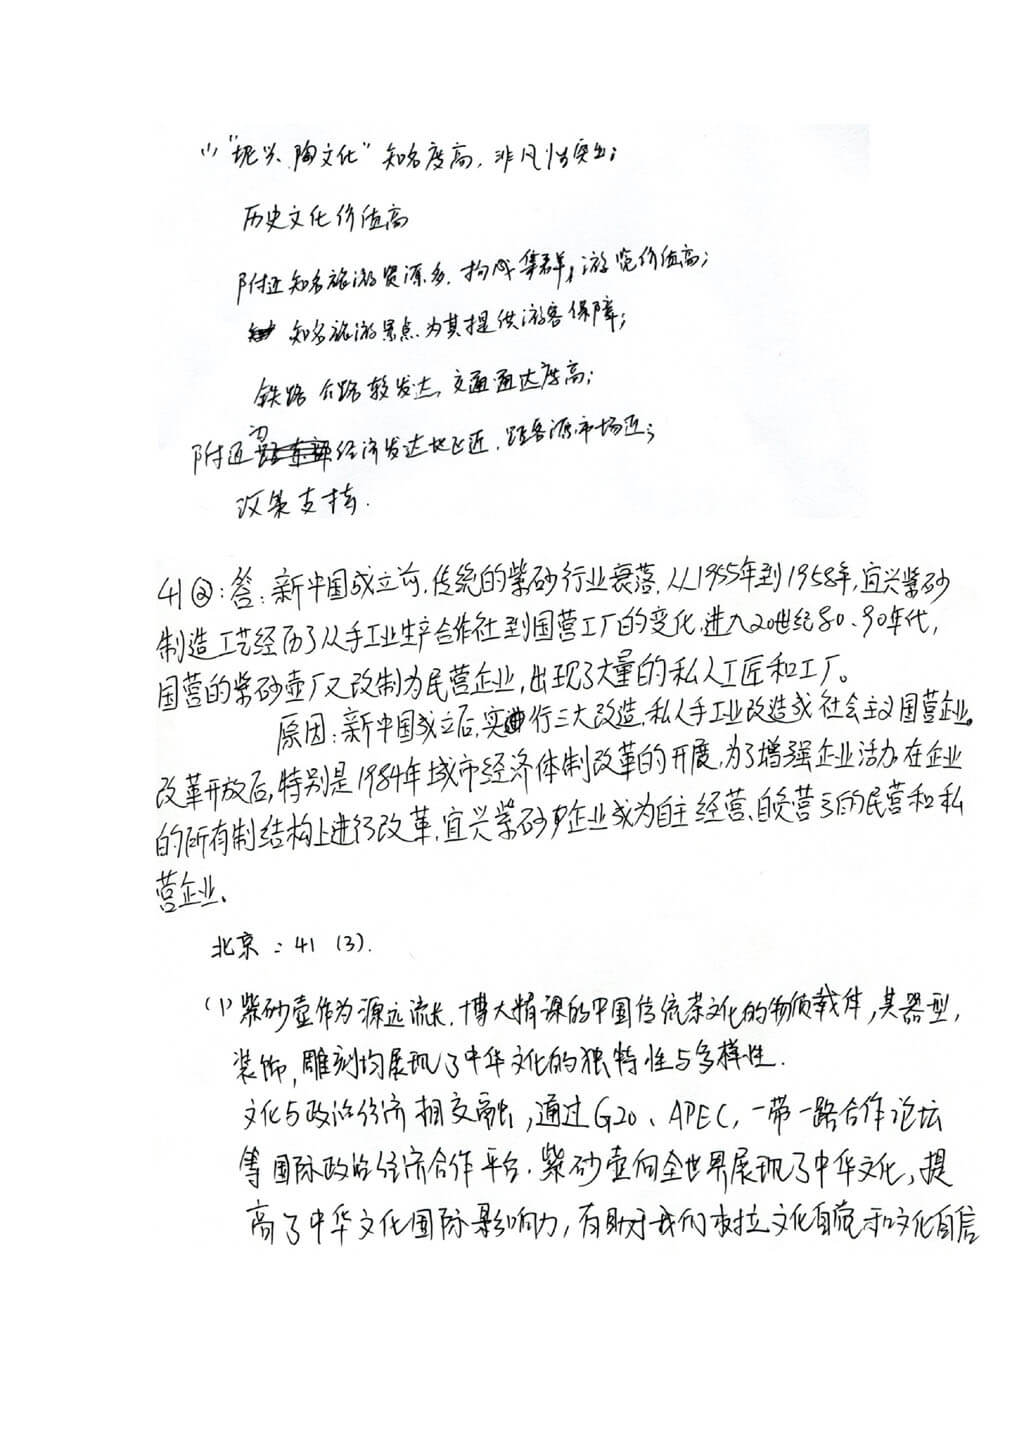 (1) "宜兴、陶文化" 知名度高, 非凡性突出;
历史文化价值高
附近知名旅游资源多, 构成集群, 游览价值高;
知名旅游景点为其提供游客保障;
铁路公路较发达, 交通通达度高;
附近为经济发达地区近, 距客源市场近;
政策支持.
41②:答:新中国成立前,传统的紫砂行业衰落,从1955年到1958年,宜兴紫砂
制造工艺经历了从手工业生产合作社到国营工厂的变化,进入20世纪80、90年代,
国营的紫砂壶厂又改制为民营企业,出现了大量的私人工匠和工厂。
原因:新中国成立后,实行三大改造,私人手工业改造成社会主义国营企业。
改革开放后,特别是1984年城市经济体制改革的开展,为了增强企业活力,在企业
的所有制结构上进行改革,宜兴紫砂企业成为自主经营、自负营亏的民营和私
营企业。
北京:41 (3).
(1)紫砂壶作为源远流长,博大精深的中国传统茶文化的物质载体,其器型,
装饰,雕刻均展现了中华文化的独特性与多样性.
文化与政治经济相交融,通过G20、APEC,一带一路合作论坛
等国际政治经济合作平台,紫砂壶向全世界展现了中华文化,提
高了中华文化国际影响力,有助于我们树立文化自觉和文化自信